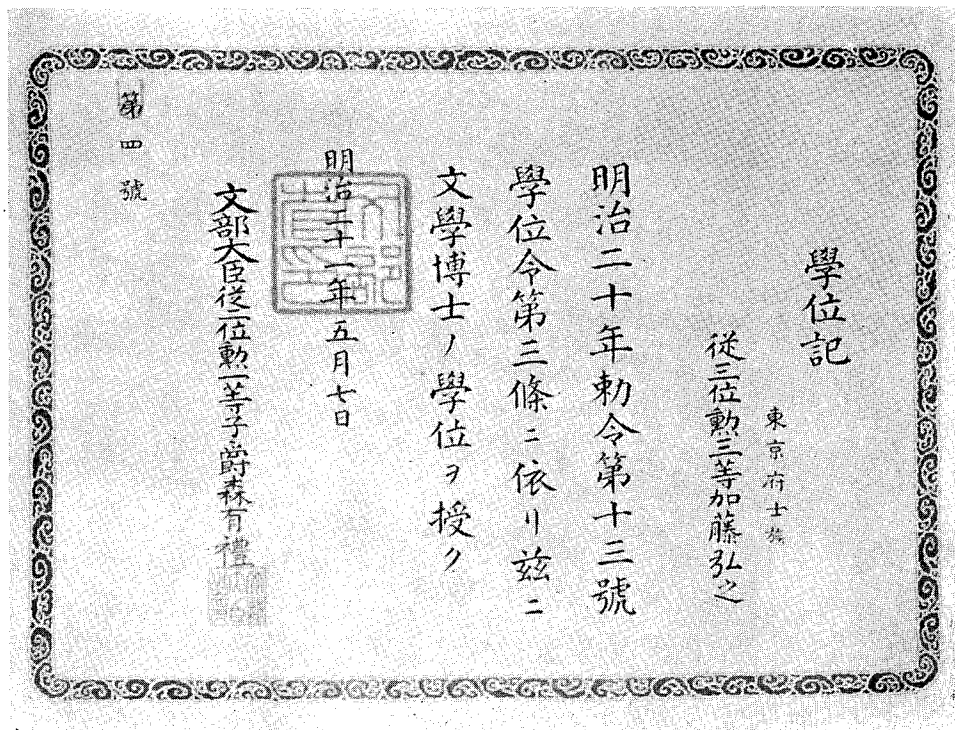 學位記
東京府士族
從三位勲三等加藤弘之
明治二十年勅令第十三號
學位令第三條ニ依リ茲ニ
文學博士ノ學位ヲ授ク
明治二十一年五月七日
文部大臣從二位勲一等子爵森有禮
第四號